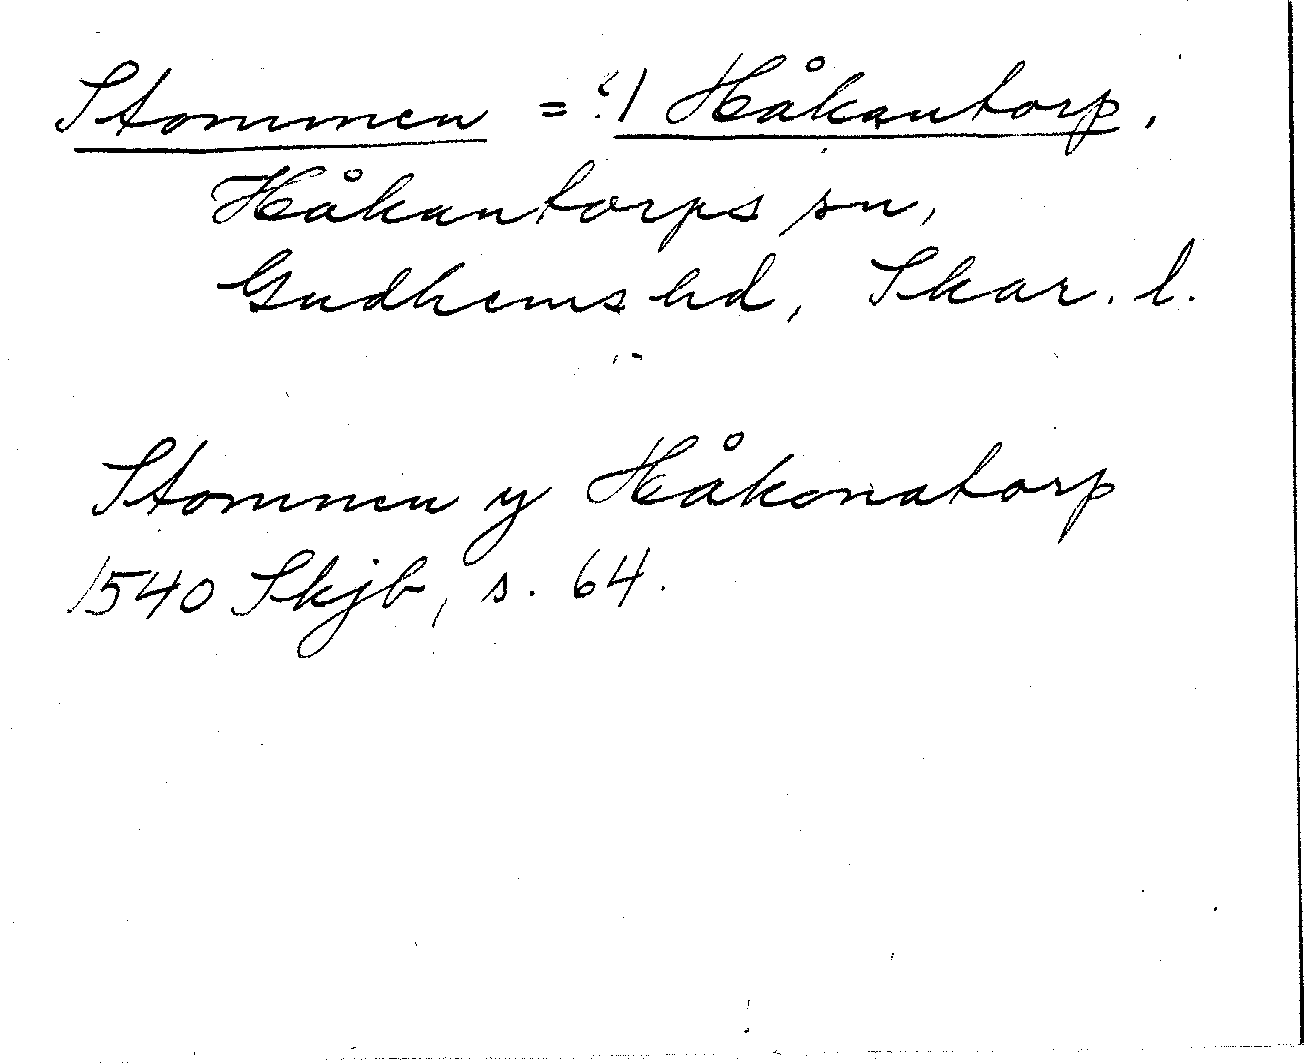 Stommen = ? 1 Håkantorp,
Håkantorps sn,
Gudhems hd, Skar. l.
Stommen y Håkonatorp
1540 Skjb, s. 64.